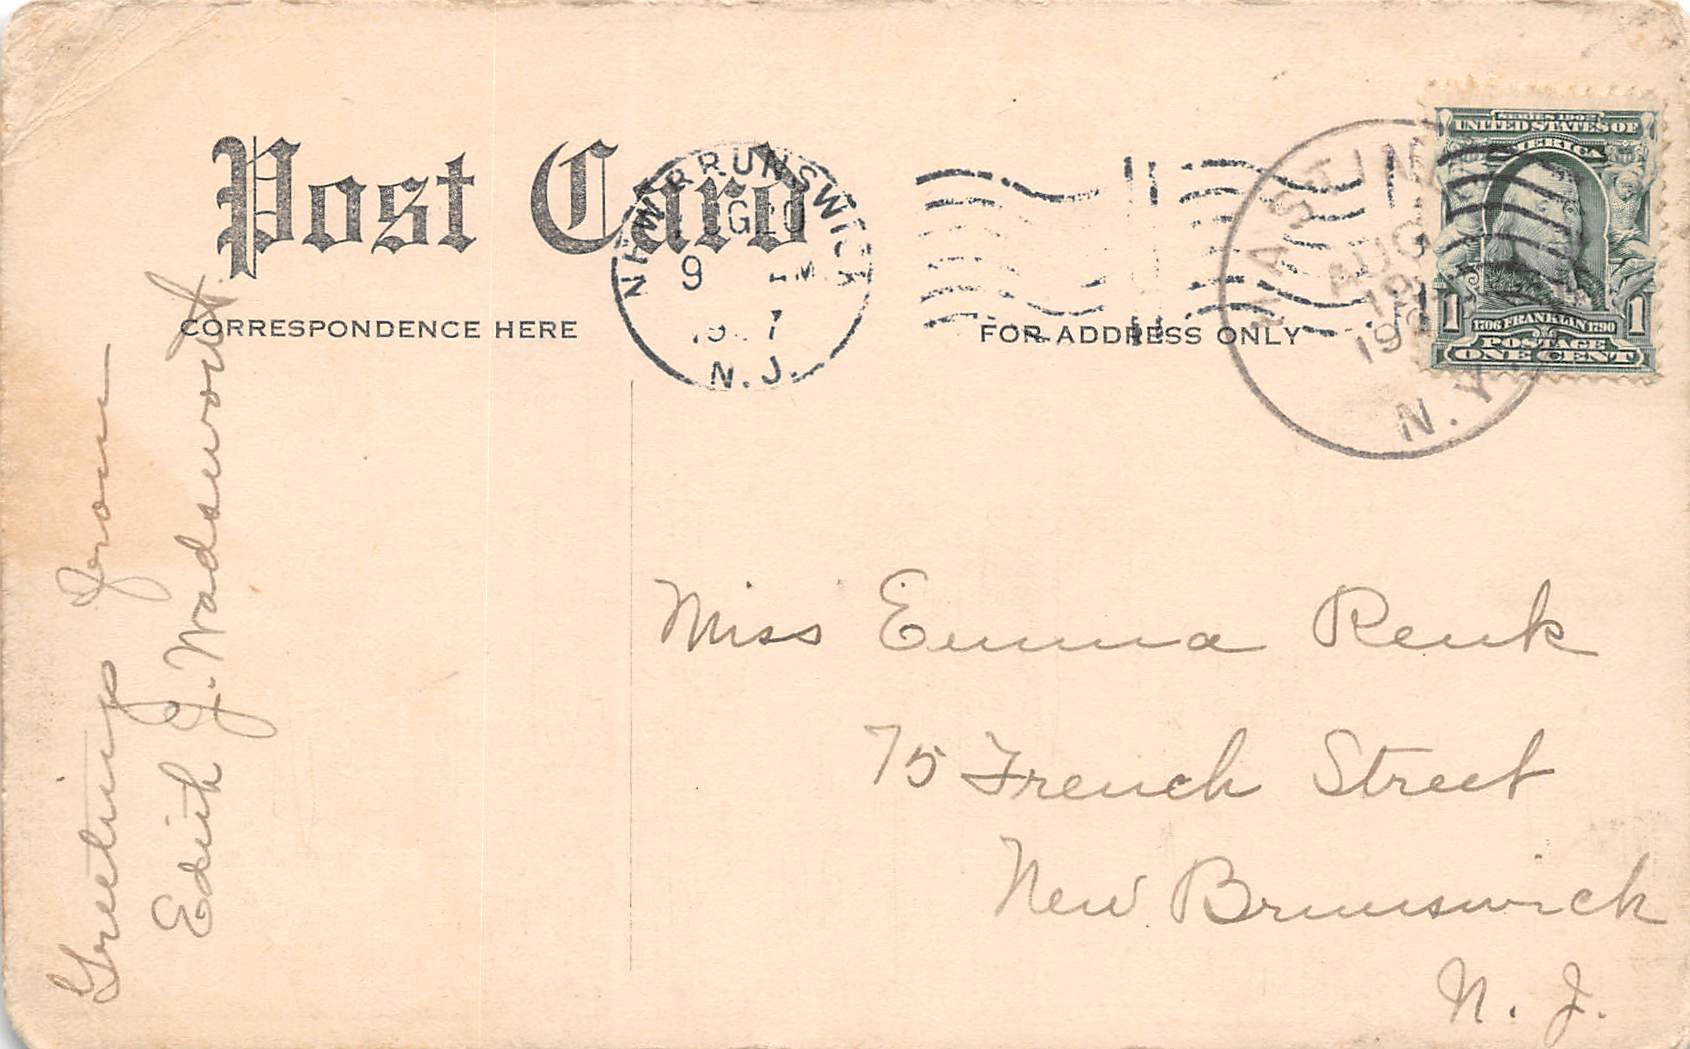 Post Card
CORRESPONDENCE HERE
FOR ADDRESS ONLY
NEW BRUNSWICK
9
N.J.
AUG
19
N.Y.
SERIES 1902
UNITED STATES OF
AMERICA
1 1
1706 FRANKLIN 1790
POSTAGE
ONE CENT
Greetings from
Edith J. Wadsworth
Miss Emma Renk
75 French Street
New Brunswick
N. J.